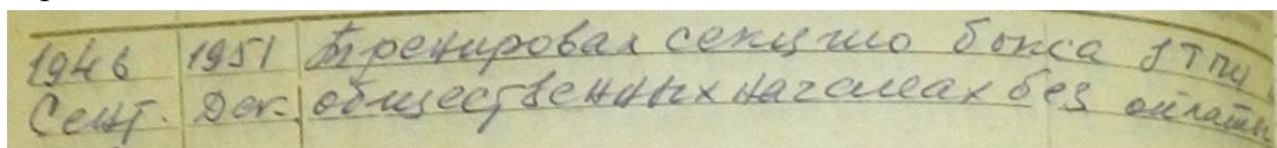 1946 1951 Тренировал секцию бокса
Сент. Дек. общественных началах без оплаты